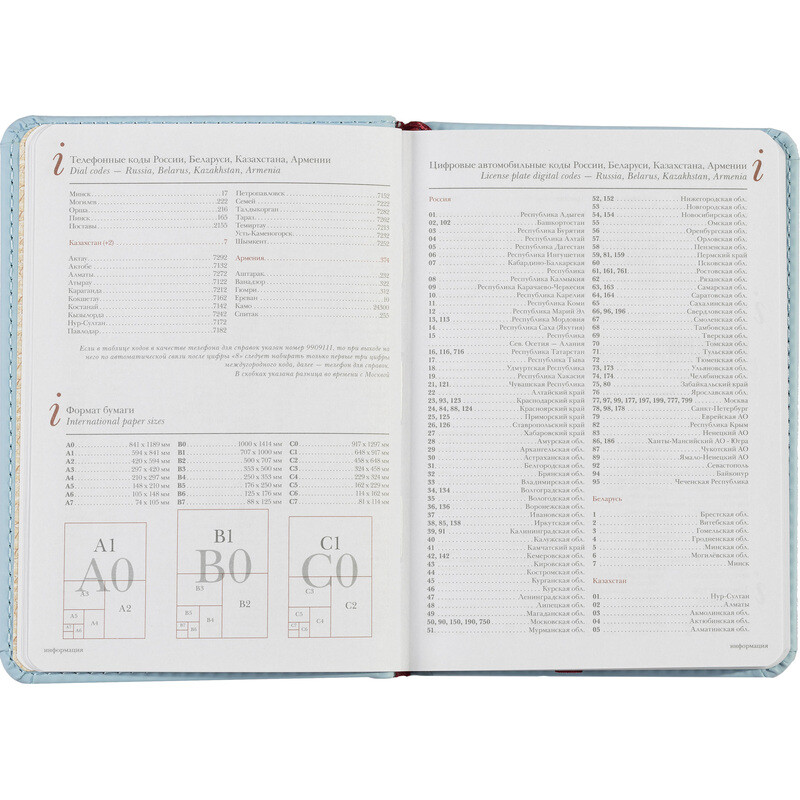 i Телефонные коды России, Беларуси, Казахстана, Армении
Dial codes — Russia, Belarus, Kazakhstan, Armenia
Минск 17
Могилев 222
Орша 216
Пинск 165
Поставы 2155
Казахстан (+2) 7
Актау 7292
Актобе 7132
Алматы 7272
Атырау 7122
Караганда 7212
Кокшетау 7162
Костанай 7142
Кызылорда 7242
Нур-Султан 7172
Павлодар 7182
Петропавловск 7152
Семей 7222
Талдыкорган 7282
Тараз 7262
Темиртау 7213
Усть-Каменогорск 7232
Шымкент 7252
Армения 374
Аштарак 232
Ванадзор 322
Гюмри 312
Ереван 10
Камо 24300
Спитак 255
Если в таблице кодов в качестве телефона для справок указан номер 9909111, то при выходе на
него по автоматической связи после цифры «8» следует набирать только первые три цифры
междугородного кода, далее — телефон для справок.
В скобках указана разница во времени с Москвой
i Формат бумаги
International paper sizes
A0 841 x 1189 мм
A1 594 x 841 мм
A2 420 x 594 мм
A3 297 x 420 мм
A4 210 x 297 мм
A5 148 x 210 мм
A6 105 x 148 мм
A7 74 x 105 мм
B0 1000 x 1414 мм
B1 707 x 1000 мм
B2 500 x 707 мм
B3 353 x 500 мм
B4 250 x 353 мм
B5 176 x 250 мм
B6 125 x 176 мм
B7 88 x 125 мм
C0 917 x 1297 мм
C1 648 x 917 мм
C2 458 x 648 мм
C3 324 x 458 мм
C4 229 x 324 мм
C5 162 x 229 мм
C6 114 x 162 мм
C7 81 x 114 мм
A1
A0
A3
A2
A5
A4
B1
B0
B3
B2
B5
B4
C1
C0
C3
C2
C5
C4
информация
Цифровые автомобильные коды России, Беларуси, Казахстана, Армении i
License plate digital codes — Russia, Belarus, Kazakhstan, Armenia
Россия
01 Республика Адыгея
02, 102 Башкортостан
03 Республика Бурятия
04 Республика Алтай
05 Республика Дагестан
06 Республика Ингушетия
07 Кабардино-Балкарская
Республика
08 Республика Калмыкия
09 Республика Карачаево-Черкесия
10 Республика Карелия
11 Республика Коми
12 Республика Марий Эл
13, 113 Республика Мордовия
14 Республика Саха (Якутия)
15 Республика
Сев. Осетия — Алания
16, 116, 716 Республика Татарстан
17 Республика Тыва
18 Удмуртская Республика
19 Республика Хакасия
21, 121 Чувашская Республика
22 Алтайский край
23, 93, 123 Краснодарский край
24, 84, 88, 124 Красноярский край
25, 125 Приморский край
26, 126 Ставропольский край
27 Хабаровский край
28 Амурская обл.
29 Архангельская обл.
30 Астраханская обл.
31 Белгородская обл.
32 Брянская обл.
33 Владимирская обл.
34, 134 Волгоградская обл.
35 Вологодская обл.
36, 136 Воронежская обл.
37 Ивановская обл.
38, 85, 138 Иркутская обл.
39, 91 Калининградская обл.
40 Калужская обл.
41 Камчатский край
42, 142 Кемеровская обл.
43 Кировская обл.
44 Костромская обл.
45 Курганская обл.
46 Курская обл.
47 Ленинградская обл.
48 Липецкая обл.
49 Магаданская обл.
50, 90, 150, 190, 750 Московская обл.
51 Мурманская обл.
52, 152 Нижегородская обл.
53 Новгородская обл.
54, 154 Новосибирская обл.
55 Омская обл.
56 Оренбургская обл.
57 Орловская обл.
58 Пензенская обл.
59, 81, 159 Пермский край
60 Псковская обл.
61, 161, 761 Ростовская обл.
62 Рязанская обл.
63, 163 Самарская обл.
64, 164 Саратовская обл.
65 Сахалинская обл.
66, 96, 196 Свердловская обл.
67 Смоленская обл.
68 Тамбовская обл.
69 Тверская обл.
70 Томская обл.
71 Тульская обл.
72 Тюменская обл.
73, 173 Ульяновская обл.
74, 174 Челябинская обл.
75, 80 Забайкальский край
76 Ярославская обл.
77, 97, 99, 177, 197, 199, 777, 799 Москва
78, 98, 178 Санкт-Петербург
79 Еврейская АО
82 Республика Крым
83 Ненецкий АО
86, 186 Ханты-Мансийский АО - Югра
87 Чукотский АО
89 Ямало-Ненецкий АО
92 Севастополь
94 Байконур
95 Чеченская Республика
Беларусь
1 Брестская обл.
2 Витебская обл.
3 Гомельская обл.
4 Гродненская обл.
5 Минская обл.
6 Могилёвская обл.
7 Минск
Казахстан
01 Нур-Султан
02 Алматы
03 Акмолинская обл.
04 Актюбинская обл.
05 Алматинская обл.
информация